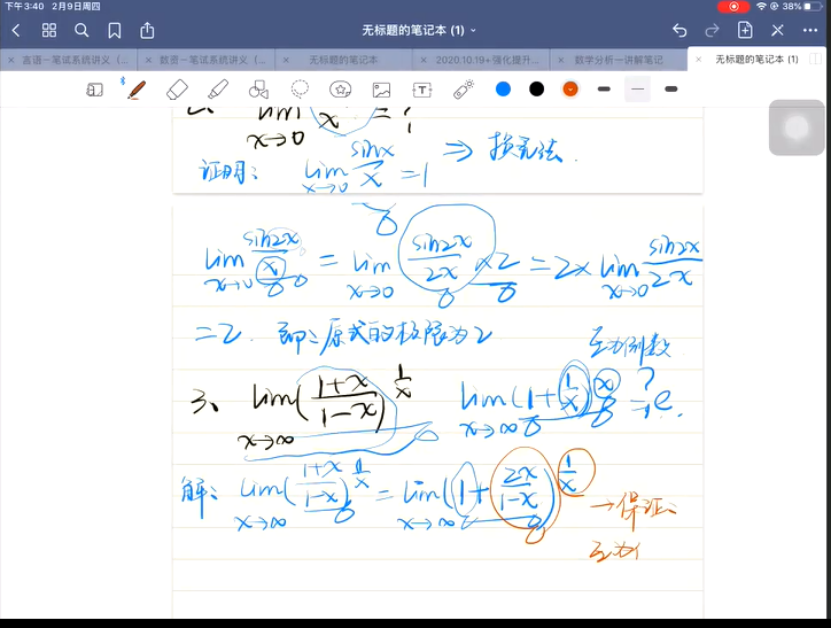 下午3:40 2月9日周四
38%
无标题的笔记本 (1)
言语一笔试系统讲义（... 数资一笔试系统讲义（... 无标题的笔记本 2020.10.19+强化提升... 数学分析一讲解笔记 无标题的笔记本 (1)
lim x→0 x = ?
证明: lim x→0 sinx/x = 1 ⇒ 换元法.
lim x→0 sin2x/x = lim x→0 sin2x/2x ×2 = 2× lim x→0 sin2x/2x
=2. 即:原式的极限为2
互为倒数
3、 lim x→∞ (1+x/1-x)^1/x lim x→∞ (1+1/x)^x ?→ e.
解: lim x→∞ (1+x/1-x)^1/x = lim x→∞ (1+2x/1-x)^1/x →保证:
互为